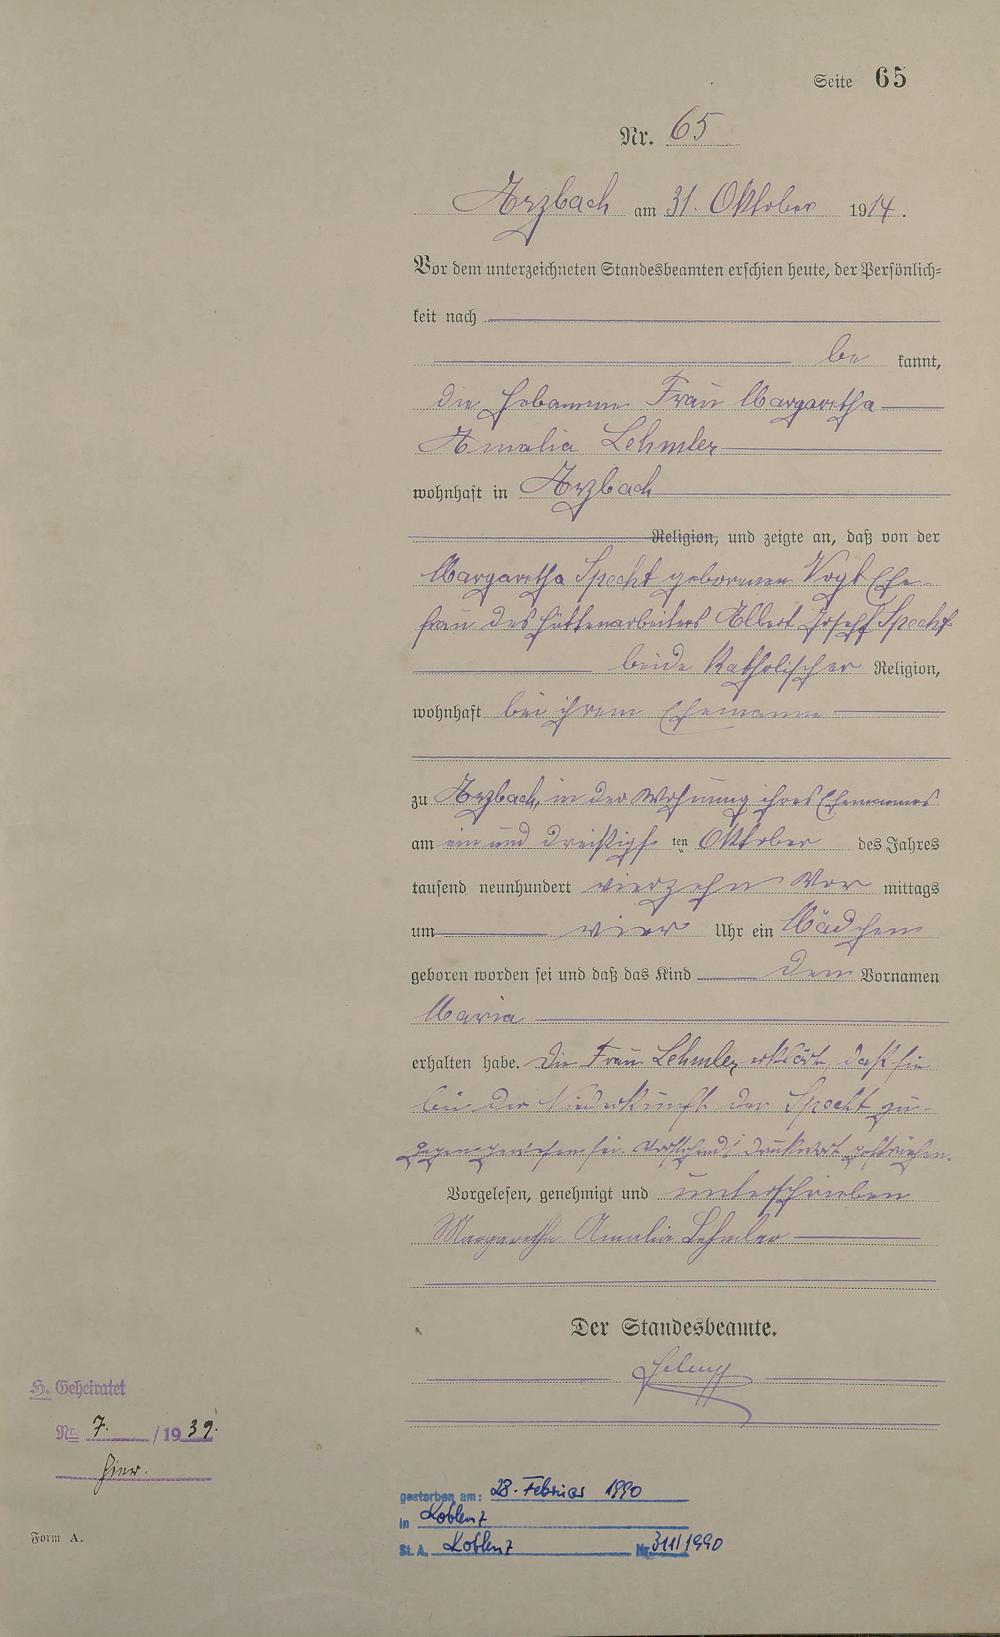 Seite 65
Nr. 65
Arzbach am 31. Oktober 1914.
Vor dem unterzeichneten Standesbeamten erschien heute, der Persönlich-
keit nach
be kannt,
die Hebamme Frau Margaretha
Amalia Lehmler
wohnhaft in Arzbach
Religion, und zeigte an, daß von der
Margaretha Specht geborenen Vogt Ehe-
frau des Hüttenarbeiters Albert Joseph Specht
beide katholischer Religion,
wohnhaft bei ihrem Ehemanne
zu Arzbach, in der Wohnung ihres Ehemannes
am ein und dreißigs ten Oktober des Jahres
tausend neunhundert vierzehn Vor mittags
um vier Uhr ein Mädchen
geboren worden sei und daß das Kind den Vornamen
Maria
erhalten habe. Die Frau Lehmler erklärte, daß sie
bei der Niederkunft der Specht zu-
gegen gewesen sei. Vorstehend 1 Druckwort gestrichen.
Vorgelesen, genehmigt und unterschrieben
Margaretha Amalia Lehmler
Der Standesbeamte.
H. Geheiratet
Nr. 7. /1939.
hier.
gestorben am: 28. Februar 1990
in Koblenz
St. A. Koblenz Nr. 311/1990
Form A.